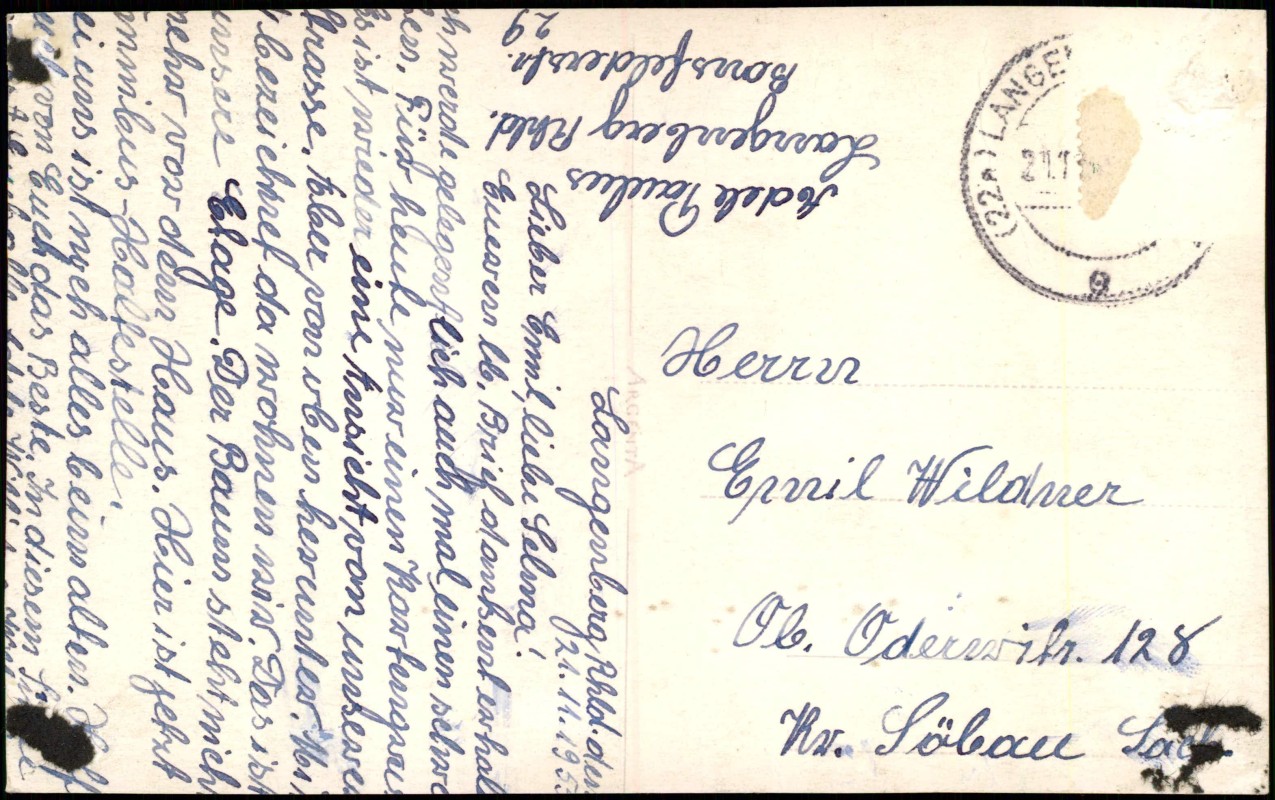 Langenberg, Rhld. den
21.11.195
Lieber Emil, liebe Selma!
Eueren lb. Brief dankend erhal
werde gelegentlich auch mal einen schr
ben. Für heute nur einen Kartengrus
ist wieder eine Ansicht von unserer
Strasse. Aber von oben herunter. Wo i
da wohnen wir. Das ist
unsere Etage. Der Baum steht nich
mehr vor dem Haus. Hier ist jetzt
Omnibus-Haltestelle.
ei uns ist noch alles beim alten.
von Euch das Beste. In diesem Sinne
Adele Paulus
Langenberg Rhld.
Bonsfelderstr.
29
(22a) LANGE
21.1
a
ARGENTA
Herrn
Emil Wildner
Ob. Oderwitz. 128
Kr. Löbau Sach.